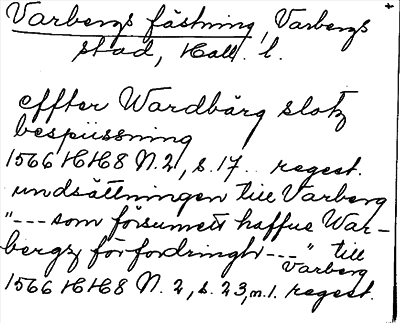 Varbergs fästning, Varbergs
stad, Hall. l.
effter Wardbärg slotz
bespiissning
1566 HH8 N. 2, s. 17. regest.
undsättningen till Varberg
"--- som försumett haffue War-
bergz förfordringh ---" till
Varberg
1566 HH8 N. 2, s. 23, m.l. regest.